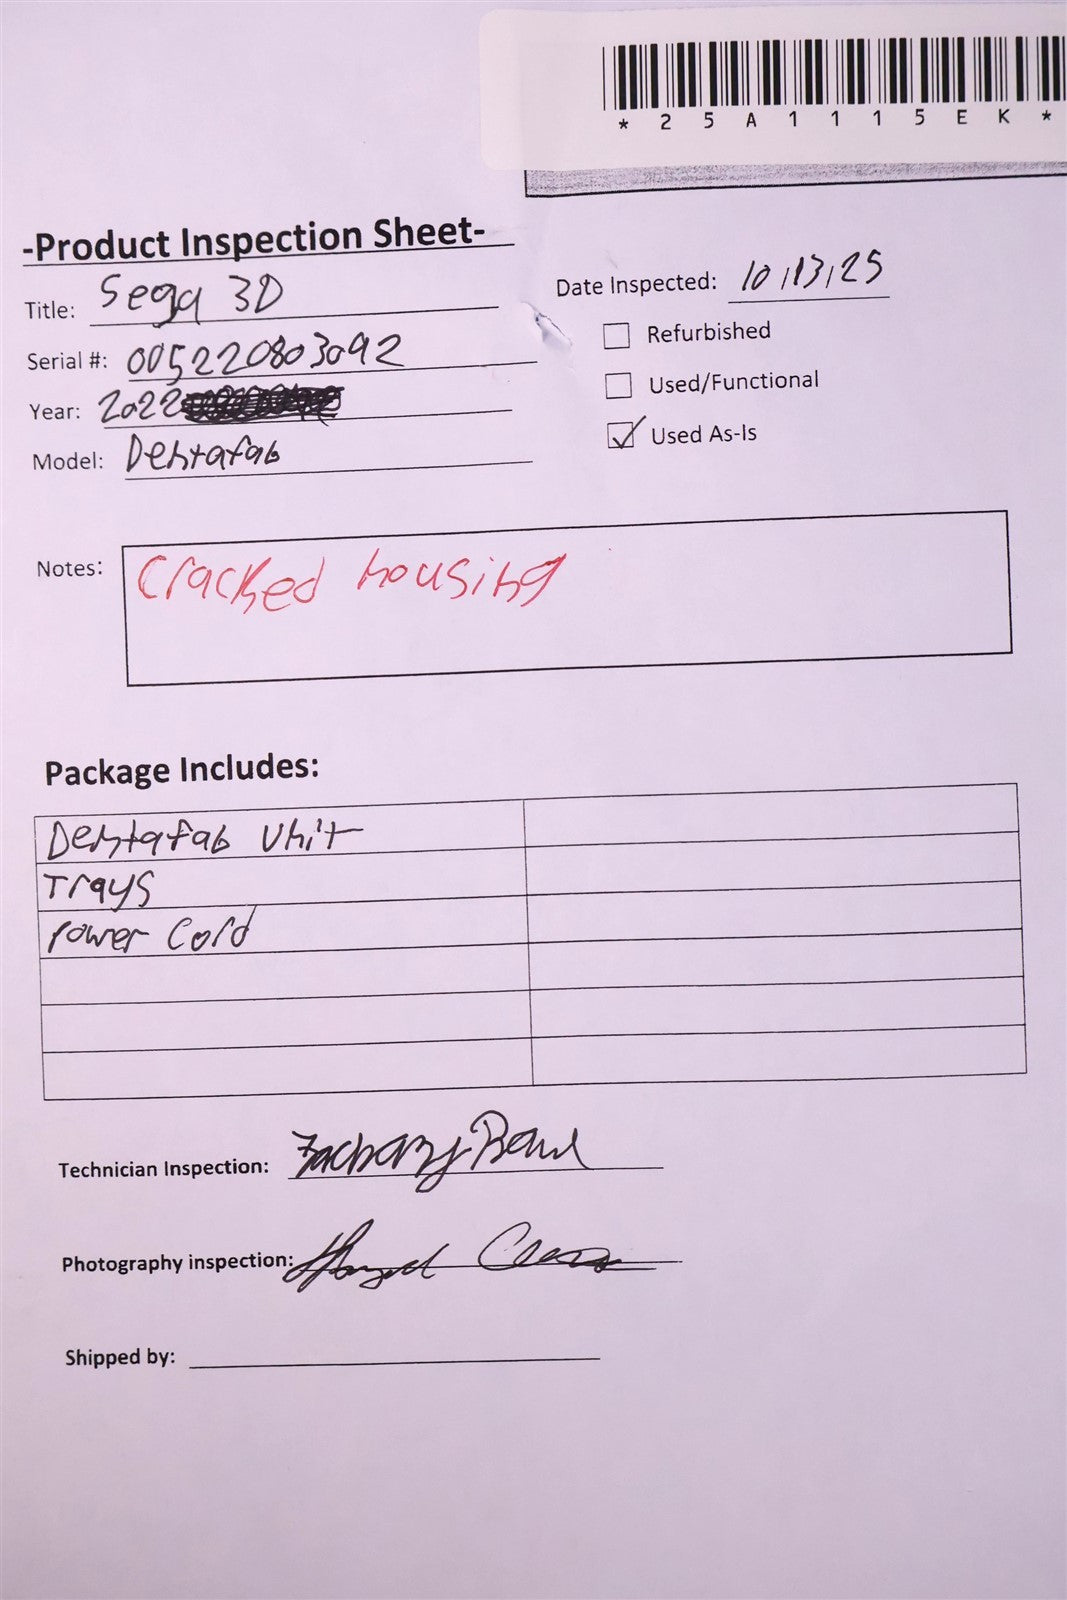 *25A1115EK*
-Product Inspection Sheet-
Title: Sega 3D
Date Inspected: 10/13/25
Refurbished
Serial #: 005220803092
Used/Functional
Year: 2022
Used As-Is
Model: Dentafab
Notes: Cracked housing
Package Includes:
Dentafab Unit
Trays
Power Cord
Technician Inspection: Zachary
Photography inspection:
Shipped by: